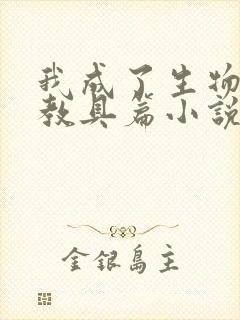 我成了生物
教具篇小說
金銀島主